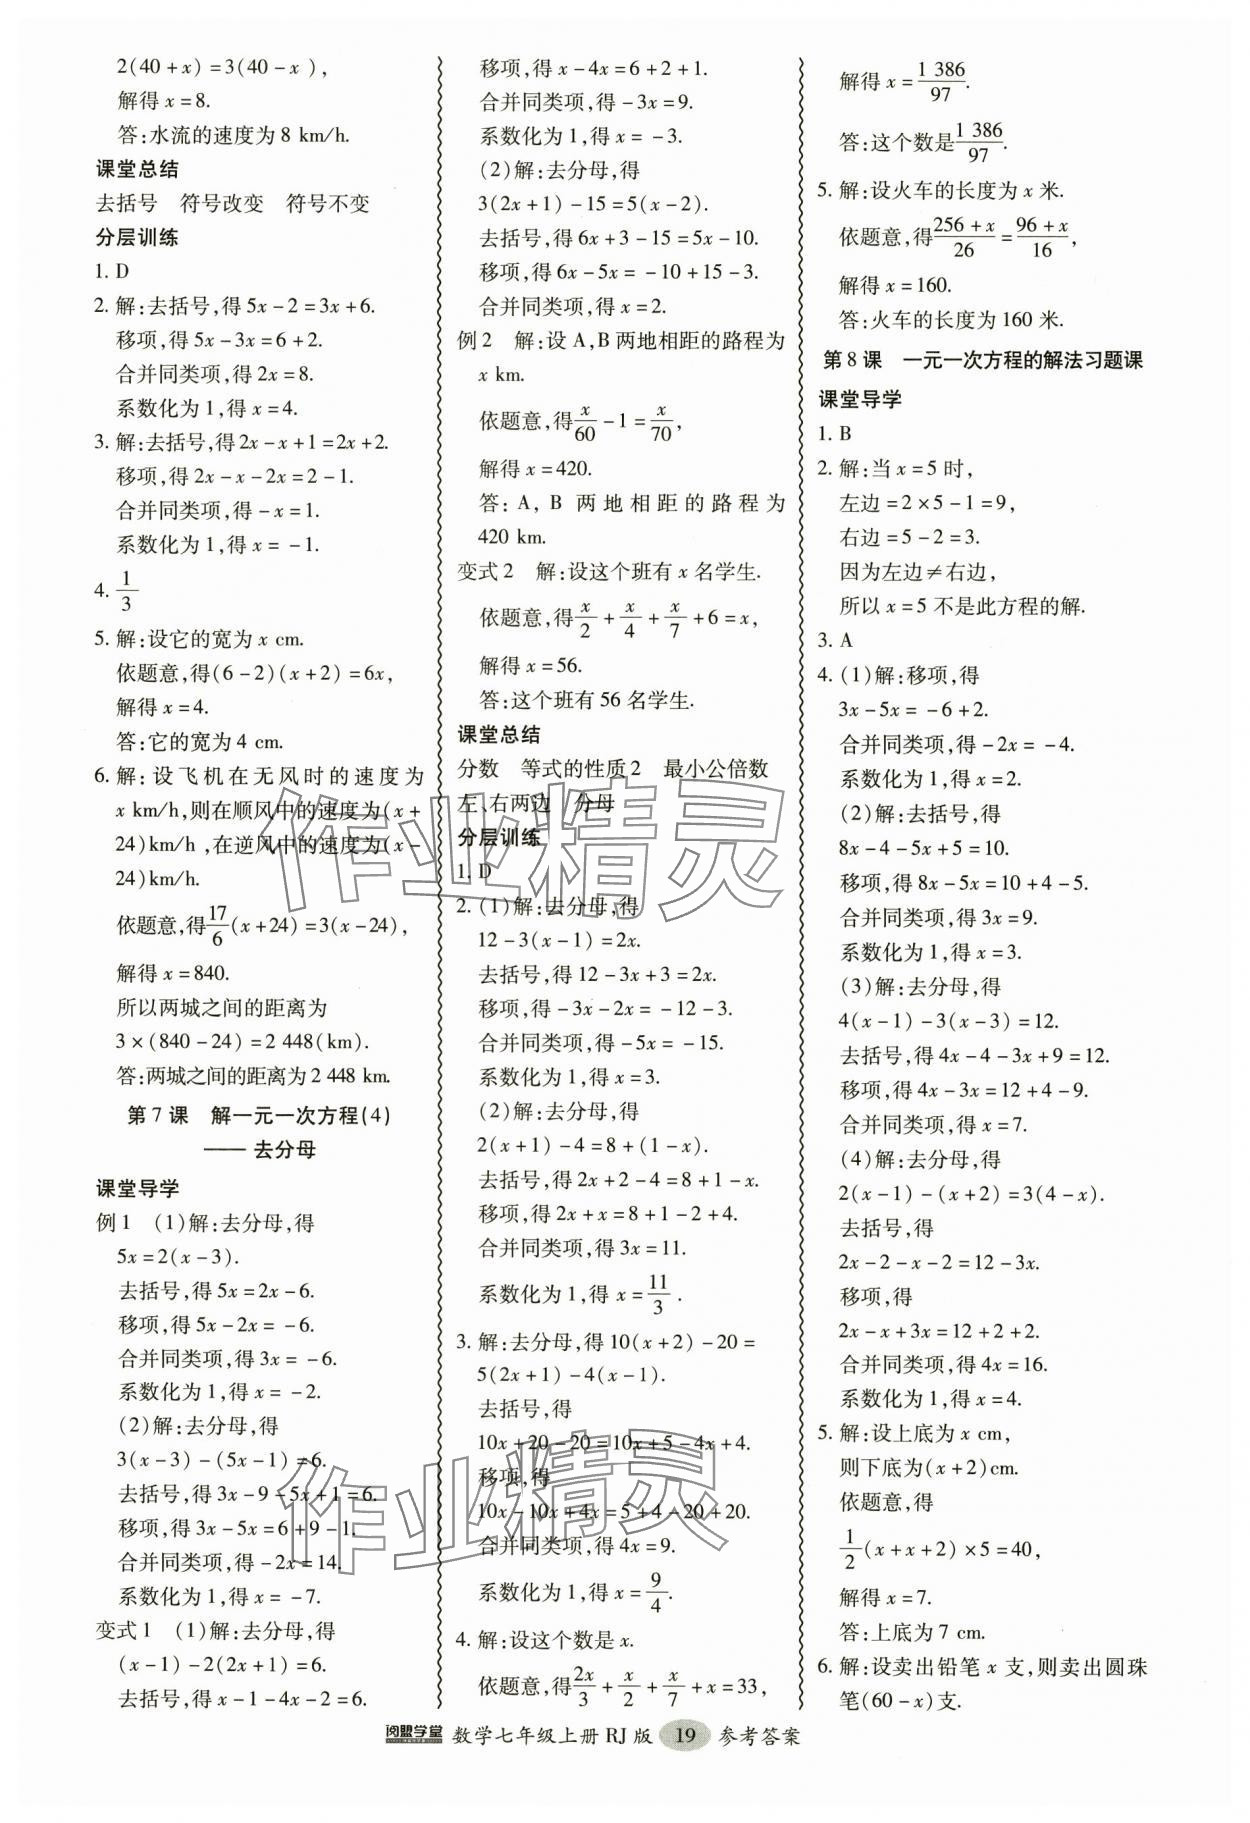 2(40+x)=3(40-x),
解得 x=8.
答:水流的速度为 8 km/h.
课堂总结
去括号 符号改变 符号不变
分层训练
1. D
2. 解:去括号,得 5x-2=3x+6.
移项,得 5x-3x=6+2.
合并同类项,得 2x=8.
系数化为 1,得 x=4.
3. 解:去括号,得 2x-x+1=2x+2.
移项,得 2x-x-2x=2-1.
合并同类项,得 -x=1.
系数化为 1,得 x=-1.
4. 1/3
5. 解:设它的宽为 x cm.
依题意,得(6-2)(x+2)=6x,
解得 x=4.
答:它的宽为 4 cm.
6. 解:设飞机在无风时的速度为
x km/h,则在顺风中的速度为(x+
24)km/h,在逆风中的速度为(x-
24)km/h.
依题意,得17/6(x+24)=3(x-24),
解得 x=840.
所以两城之间的距离为
3×(840-24)=2 448(km).
答:两城之间的距离为 2 448 km.
第 7 课 解一元一次方程(4)
——去分母
课堂导学
例 1 (1)解:去分母,得
5x=2(x-3).
去括号,得 5x=2x-6.
移项,得 5x-2x=-6.
合并同类项,得 3x=-6.
系数化为 1,得 x=-2.
(2)解:去分母,得
3(x-3)-(5x-1)=6.
去括号,得 3x-9-5x+1=6.
移项,得 3x-5x=6+9-1.
合并同类项,得 -2x=14.
系数化为 1,得 x=-7.
变式 1 (1)解:去分母,得
(x-1)-2(2x+1)=6.
去括号,得 x-1-4x-2=6.
移项,得 x-4x=6+2+1.
合并同类项,得 -3x=9.
系数化为 1,得 x=-3.
(2)解:去分母,得
3(2x+1)-15=5(x-2).
去括号,得 6x+3-15=5x-10.
移项,得 6x-5x=-10+15-3.
合并同类项,得 x=2.
例 2 解:设 A,B 两地相距的路程为
x km.
依题意,得x/60-1=x/70,
解得 x=420.
答:A,B 两地相距的路程为
420 km.
变式 2 解:设这个班有 x 名学生.
依题意,得x/2+x/4+x/7+6=x,
解得 x=56.
答:这个班有 56 名学生.
课堂总结
分数 等式的性质 2 最小公倍数
左、右两边 分母
分层训练
1. D
2. (1)解:去分母,得
12-3(x-1)=2x.
去括号,得 12-3x+3=2x.
移项,得 -3x-2x=-12-3.
合并同类项,得 -5x=-15.
系数化为 1,得 x=3.
(2)解:去分母,得
2(x+1)-4=8+(1-x).
去括号,得 2x+2-4=8+1-x.
移项,得 2x+x=8+1-2+4.
合并同类项,得 3x=11.
系数化为 1,得 x=11/3.
3. 解:去分母,得 10(x+2)-20=
5(2x+1)-4(x-1).
去括号,得
10x+20-20=10x+5-4x+4.
移项,得
10x-10x+4x=5+4-20+20.
合并同类项,得 4x=9.
系数化为 1,得 x=9/4.
4. 解:设这个数是 x.
依题意,得2x/3+x/2+x/7+x=33,
解得 x=1 386/97.
答:这个数是1 386/97.
5. 解:设火车的长度为 x 米.
依题意,得256+x/26=96+x/16,
解得 x=160.
答:火车的长度为 160 米.
第 8 课 一元一次方程的解法习题课
课堂导学
1. B
2. 解:当 x=5 时,
左边=2×5-1=9,
右边=5-2=3.
因为左边≠右边,
所以 x=5 不是此方程的解.
3. A
4. (1)解:移项,得
3x-5x=-6+2.
合并同类项,得 -2x=-4.
系数化为 1,得 x=2.
(2)解:去括号,得
8x-4-5x+5=10.
移项,得 8x-5x=10+4-5.
合并同类项,得 3x=9.
系数化为 1,得 x=3.
(3)解:去分母,得
4(x-1)-3(x-3)=12.
去括号,得 4x-4-3x+9=12.
移项,得 4x-3x=12+4-9.
合并同类项,得 x=7.
(4)解:去分母,得
2(x-1)-(x+2)=3(4-x).
去括号,得
2x-2-x-2=12-3x.
移项,得
2x-x+3x=12+2+2.
合并同类项,得 4x=16.
系数化为 1,得 x=4.
5. 解:设上底为 x cm,
则下底为(x+2)cm.
依题意,得
1/2(x+x+2)×5=40,
解得 x=7.
答:上底为 7 cm.
6. 解:设卖出铅笔 x 支,则卖出圆珠
笔(60-x)支.
阅盟学堂 数学七年级上册 RJ 版 19 参考答案
作业精灵
作业精灵